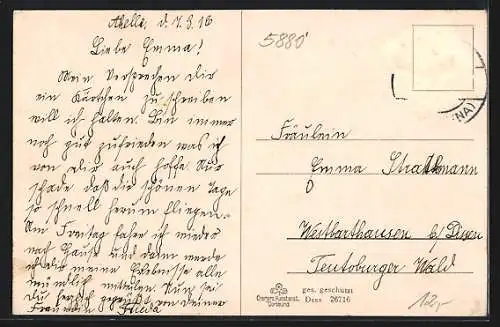 d. 7. 9. 16
Liebe Emma!
Mein Versprechen dir
ein Kärtchen zu schreiben
will ich halten. Bin immer
noch gut zufrieden was ich
von dir auch hoffe. Nur
schade daß die schönen Tage
so schnell herum fliegen.
Am Freitag fahre ich wieder
nach Hause und dann werde
ich dir meine Erlebnisse alle
mündlich mitteilen. Nun sei
du herzlich gegrüßt von deiner
Freundin Frieda
5880
NA)
Fräulein
Emma Strathmann
Westbarthausen b/ Dissen
Teutoburger Wald
ges. geschützt
Dess 26716
12,-